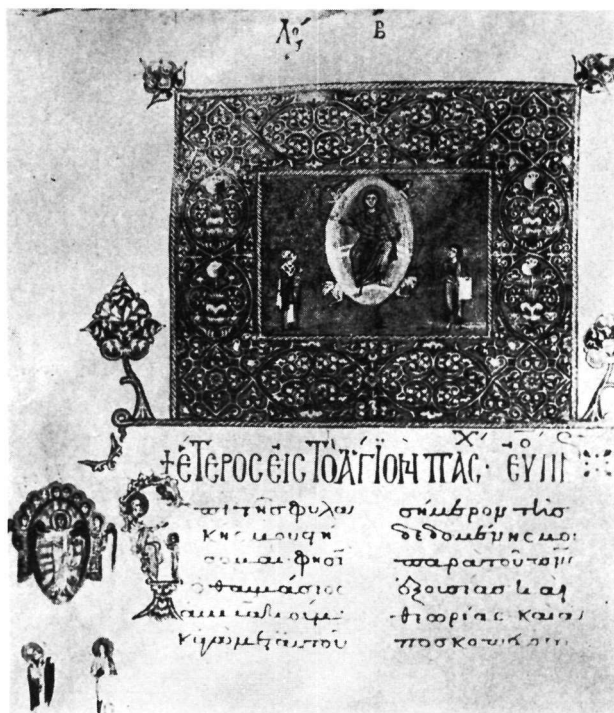 Λό Β
+ ἕΤΕΡΟC ΕἰC ΤὸἍΓΙΟΝ ΠΑC Χ·
πὶ τῆς φυλα
κῆς μου στή
σομαι· φησὶ
ὁ θαυμάσιος
ἀμβακούμ·
κἀγὼ μετ' αὐτοῦ
σήμερον τῆς
δεδομένης μοι
παρὰ τοῦ πνς
ἐξουσίας καὶ
θεωρίας· καὶ ἀ
ποσκοπεύσω